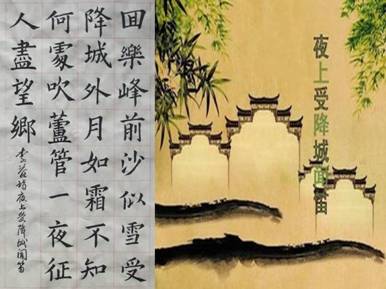 回樂峰前沙似雪受
降城外月如霜不知
何處吹蘆管一夜征
人盡望鄉
李益詩夜上受降城聞笛
夜上受降城闻笛